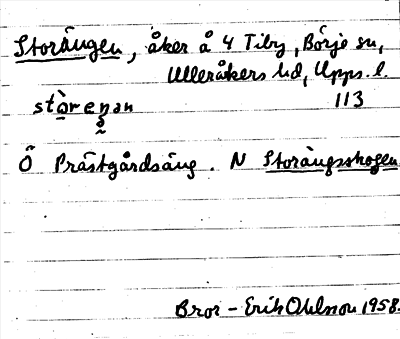 Storängen, åker å 4 Tiby, Börje sn,
Ulleråkers hd, Upps. l.
stòrenan 113
Ö Prästgårdsäng. N Storängsskogen
Bror-Erik Ohlsson 1958.